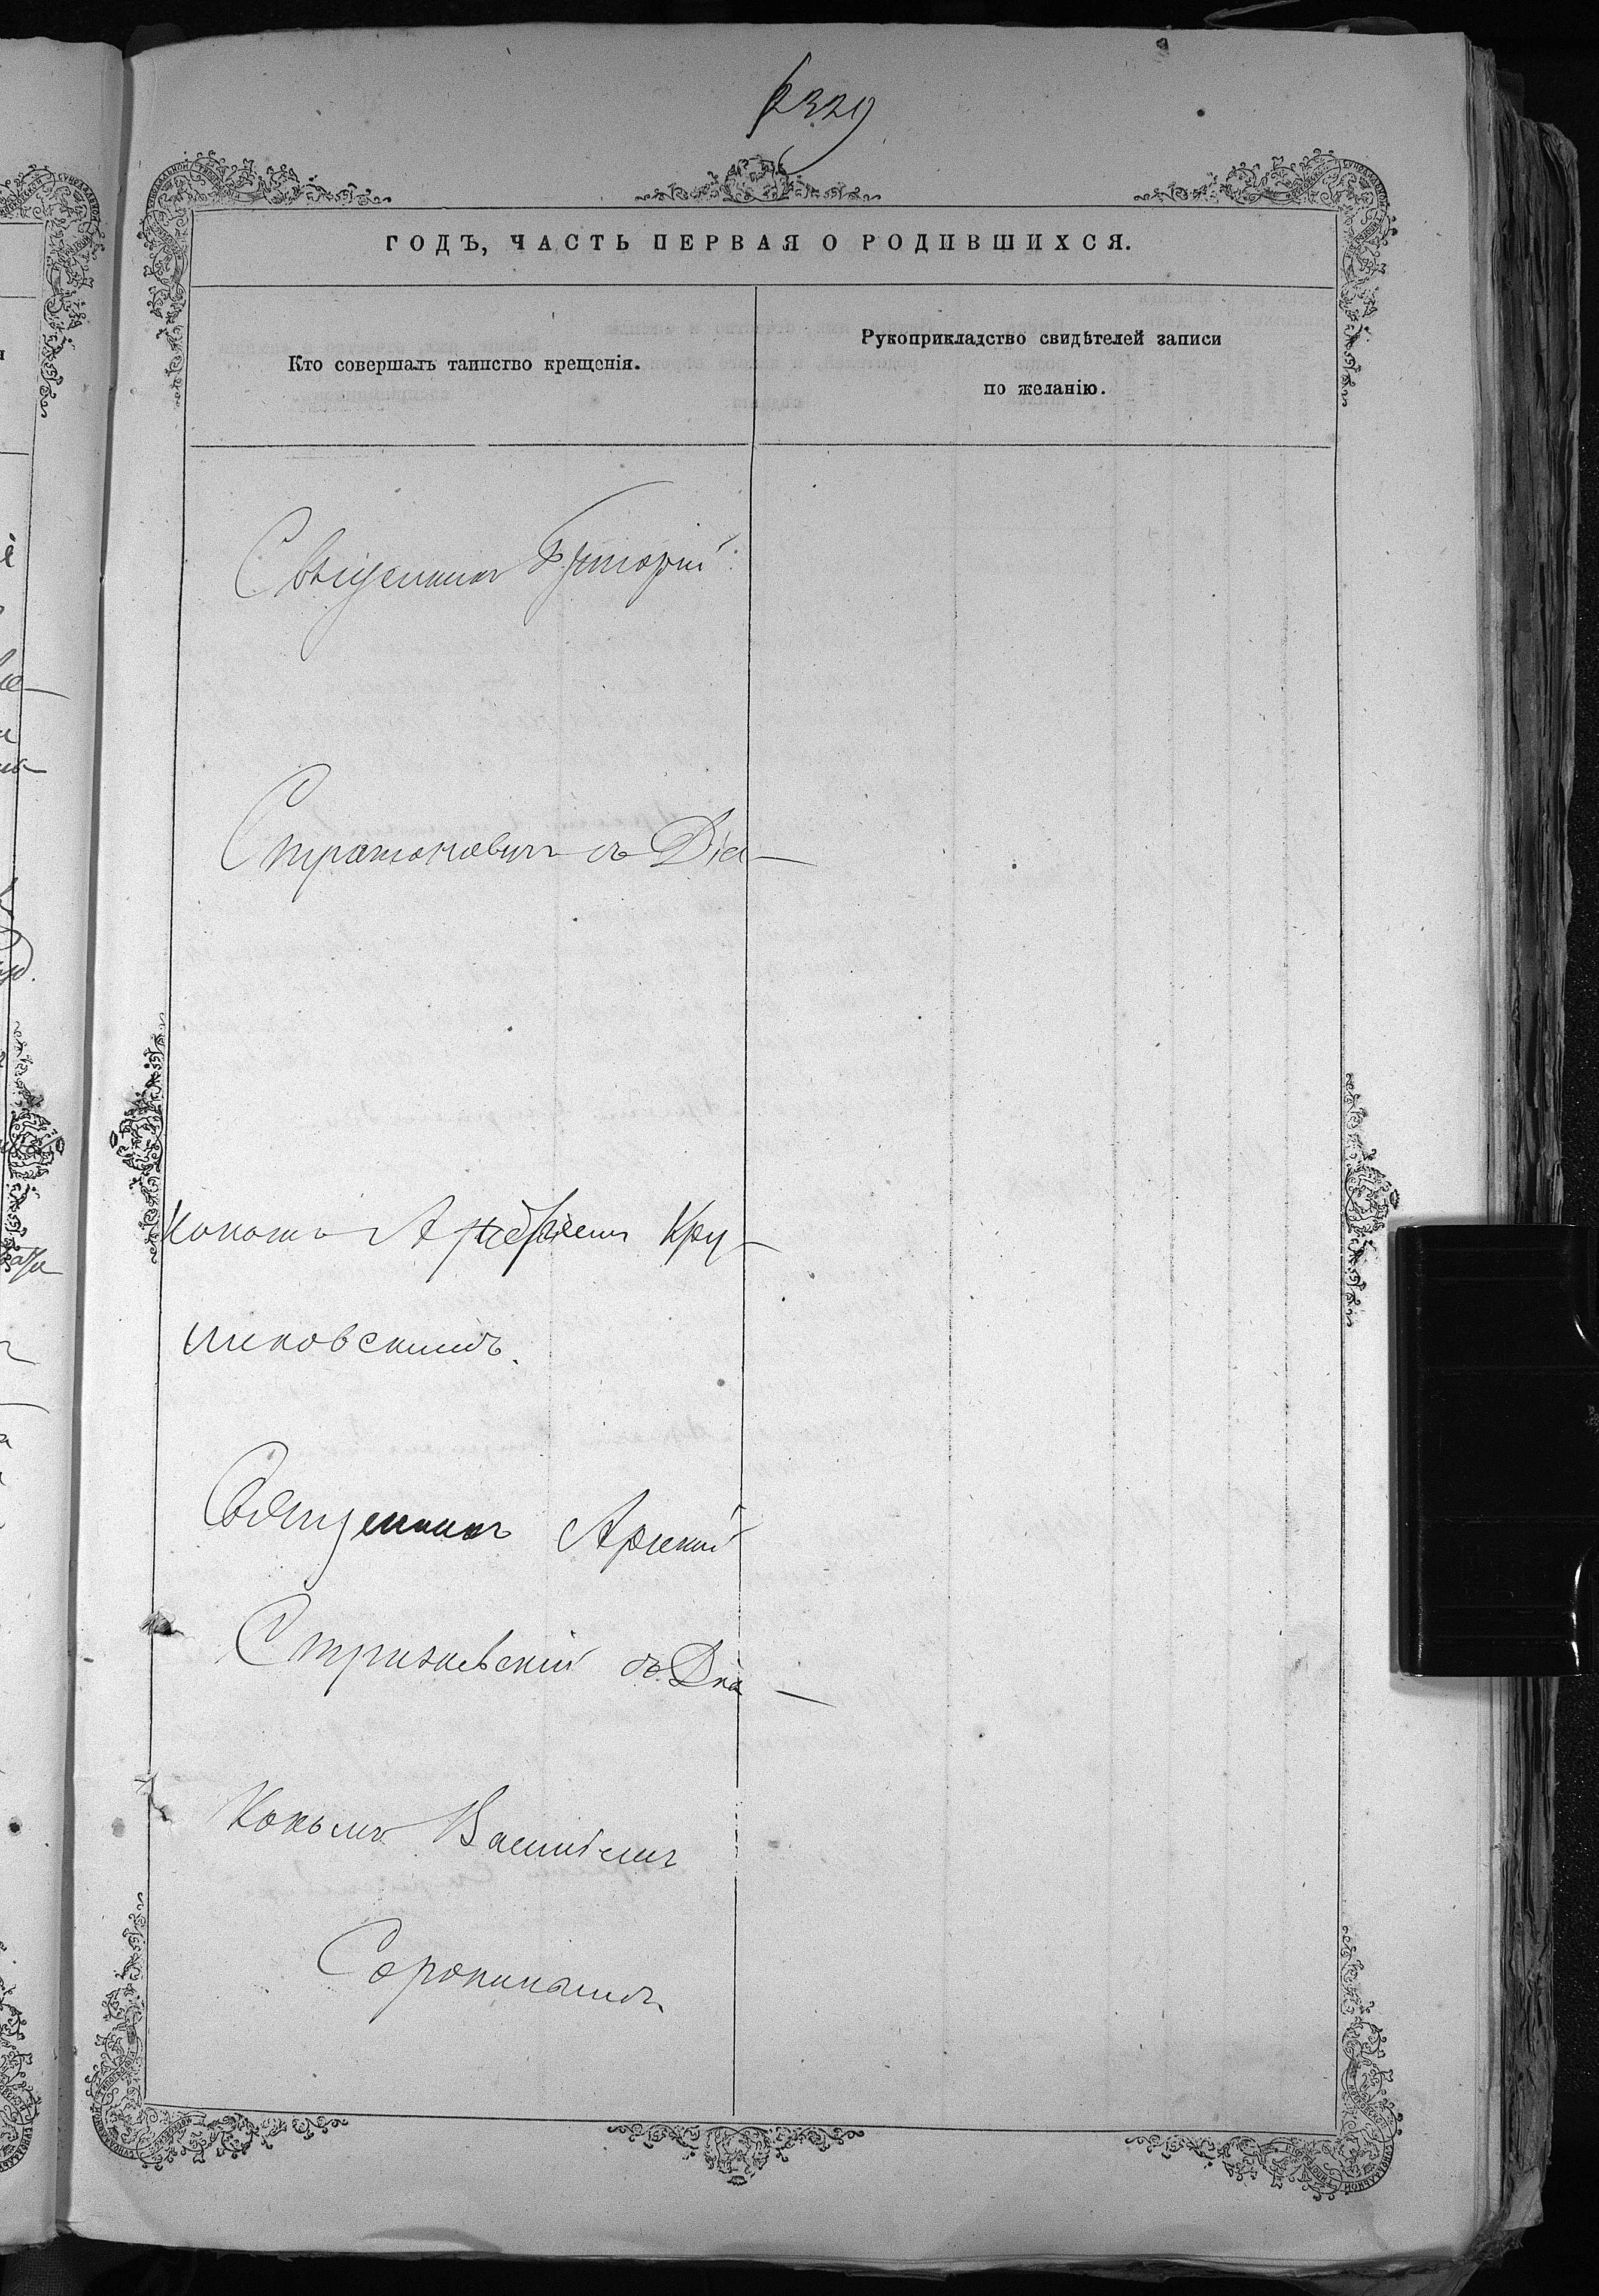 2329
ГОДЪ, ЧАСТЬ ПЕРВАЯ О РОДИВШИХСЯ.
Кто совершалъ таинство крещенія.
Рукоприкладство свидѣтелей записи
по желанію.
Священникъ Григорій
Стратоновичъ съ Діа-
кономъ Кру-
ликовскимъ.
Священникъ
Стрижевскій съ Діа-
кономъ Василіемъ
Сорокинымъ